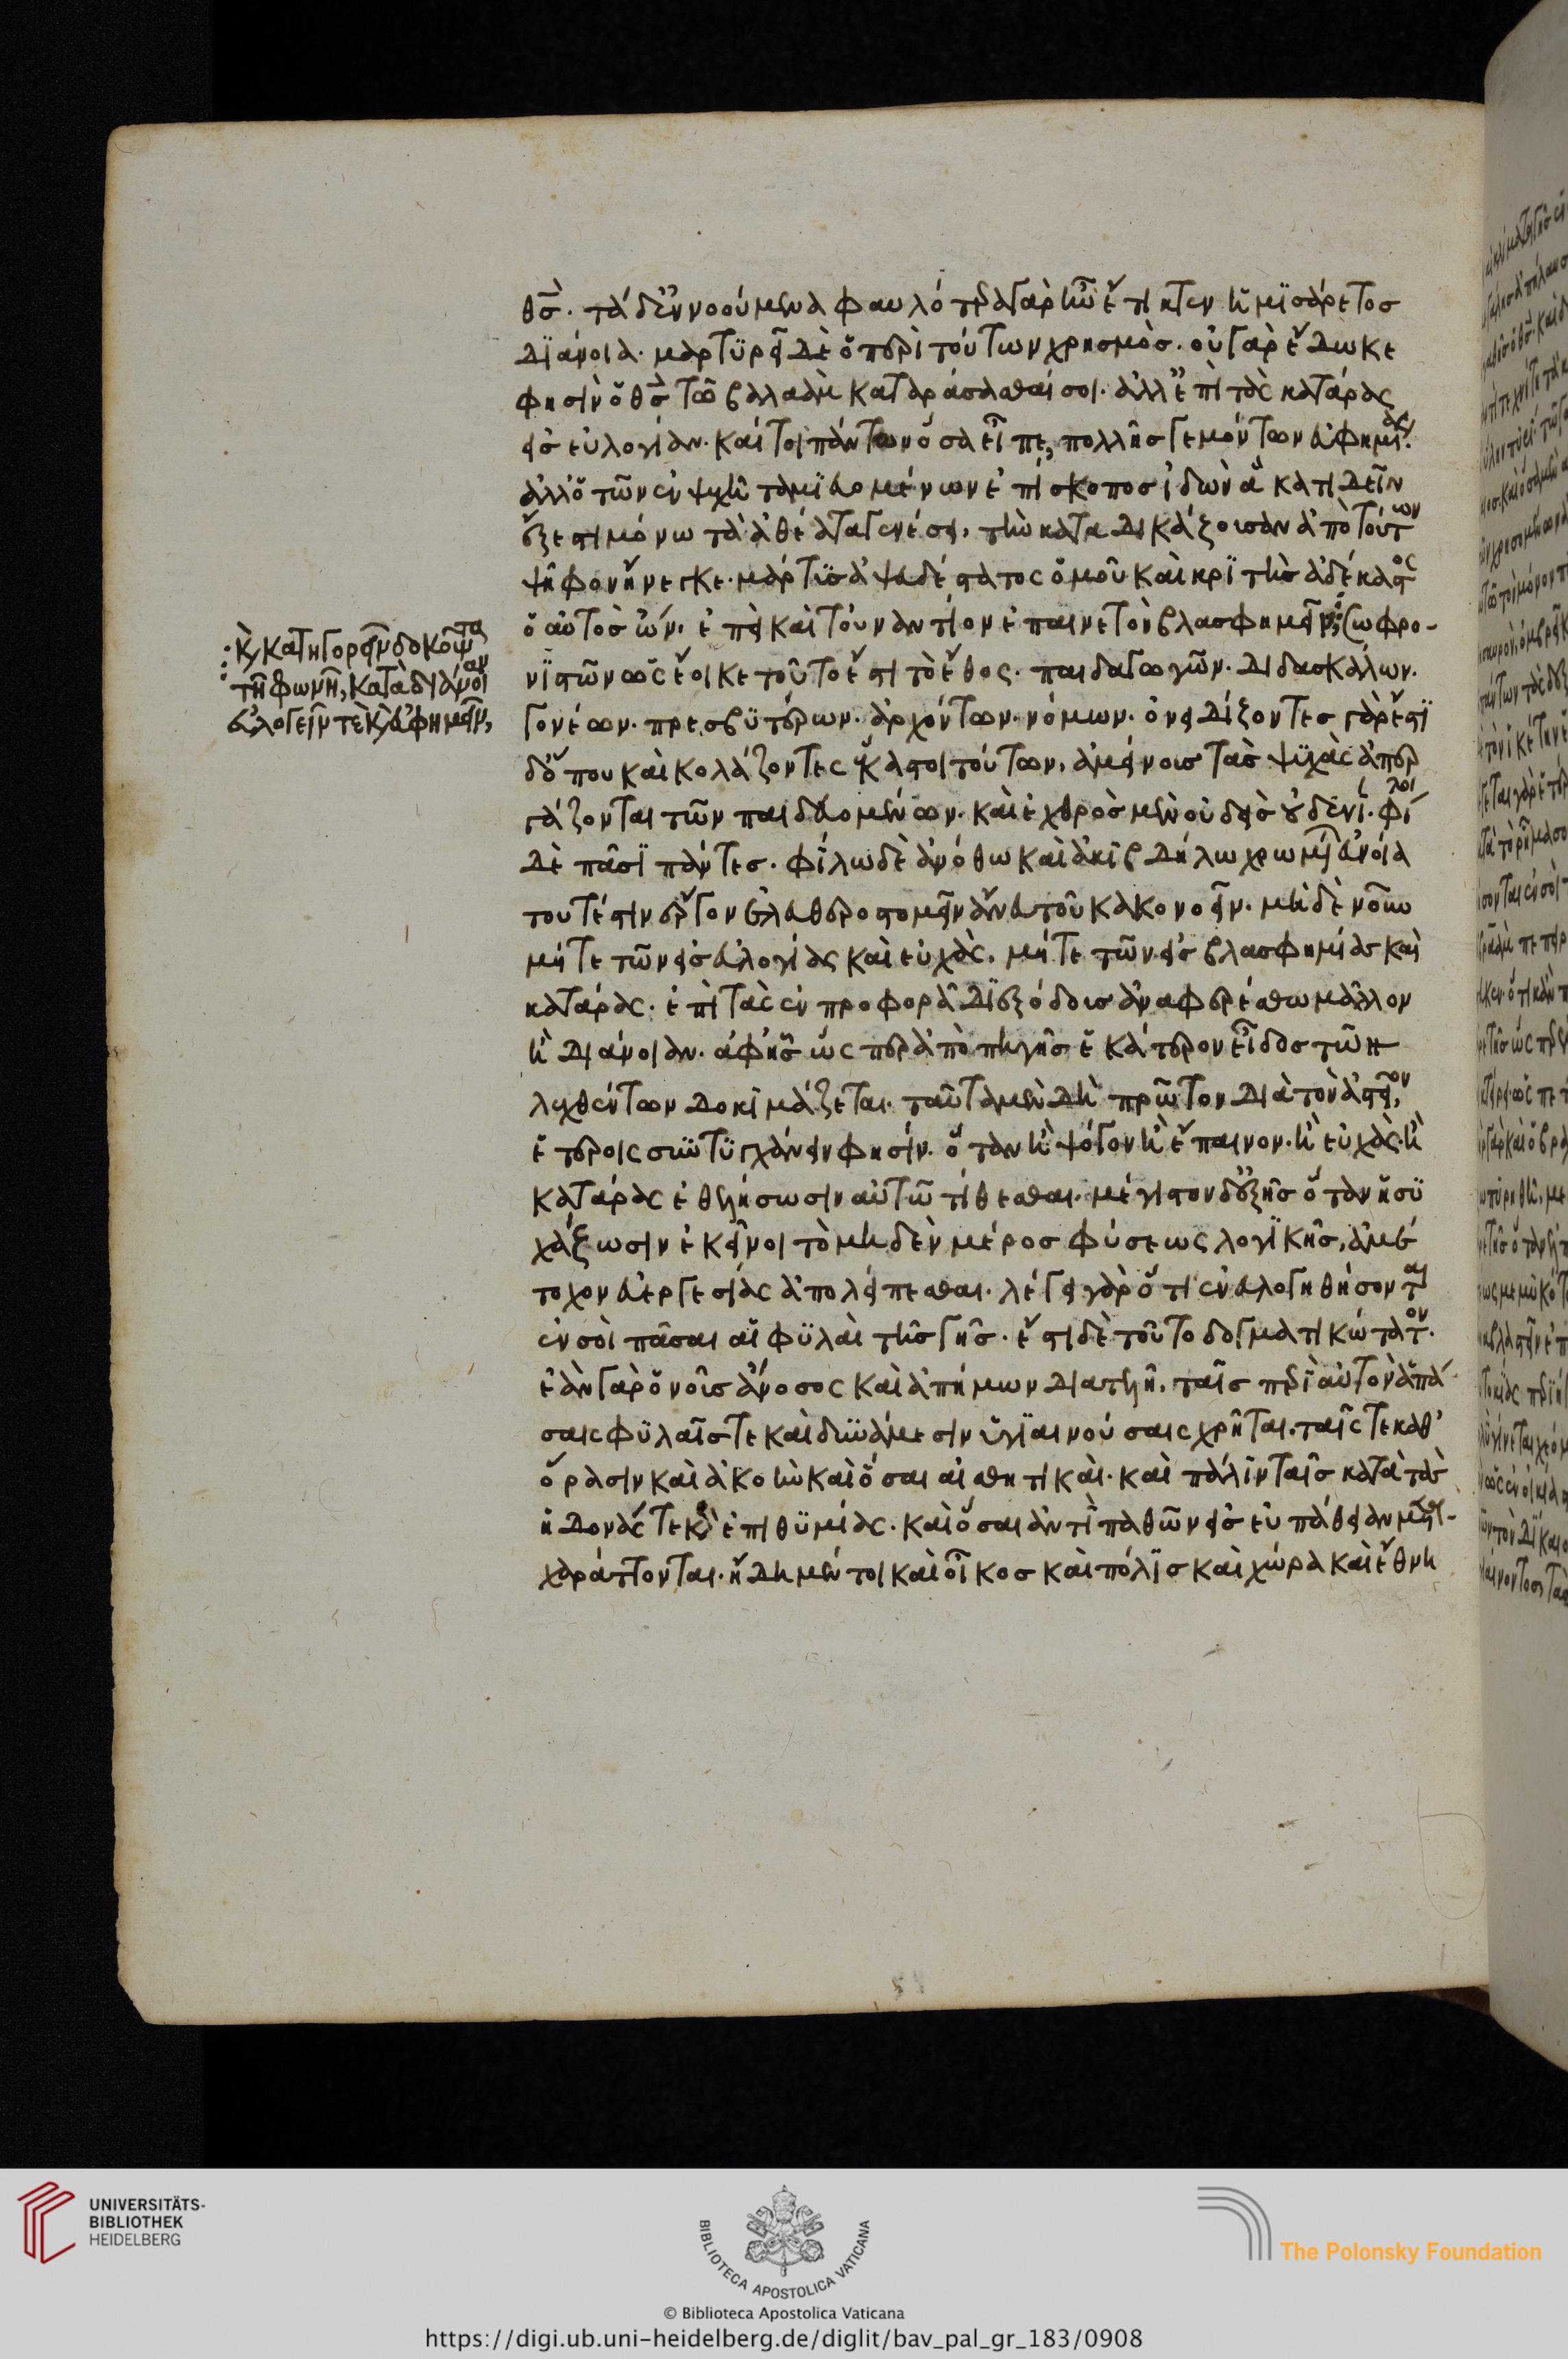 θς̄. τὰ δ᾽ ἐννοούμενα φαυλότερα γὰρ ἣν ἔτικτεν ἡ μϊσάρετος
Δϊάνοια. μαρτϋρεῖ δὲ ὁ περὶ τούτων χρησμὸς. οὐ γὰρ ἔδωκε
φησὶν ὁ θς̄ τῶ βαλαὰμ καταράσασθαί σοι. ἀλλ᾽ ἐπὶ τὰς κατάρας
εἰς εὐλογίαν. καίτοι πάντων ὅσα εἶπε, πολλῆς γεμόντων εὐφημίας.
ἀλλ᾽ ὁ τῶν ἐν ψυχῆ ταμϊευομένων ἐπίσκοπος ἰδὼν ἃ κατιδεῖν
ἔξεστι μόνω τὰ ἀθέατα γενέσει, τὴν καταδικάζουσαν ἀπὸ τούτων
ψῆφον ἤνεγκε. μάρτϋς ἀψευδέστατος ὁμοῦ καὶ κρϊτὴς ἀδέκαστος
ὁ αὐτὸς ὤν. ἐπεὶ καὶ τοὐναντίον ἐπαινετὸν βλασφημεῖν, σωφρο-
νϊστῶν ὡς ἔοικε τοῦτο ἔστι τὸ ἔθος. παιδαγωγῶν. διδασκάλων.
γονέων. πρεσβϋτέρων. ἀρχόντων. νόμων. ὀνειδίζοντες γὰρ ἔστϊ
δ᾽ ὅπου καὶ κολάζοντες ἕκαστοι τούτων, ἀμείνους τὰς ψϋχὰς ἀπερ
γάζονται τῶν παιδευομένων. καὶ ἐχθρὸς μὲν οὐδεὶς οὐδενί. φίλοι
δὲ πᾶσϊ πάντες. φίλω δὲ ἀνόθω καὶ ἀκιβδήλω χρωμένων εὐνοία
τουτέστιν ἔργον ἐλευθεροστομεῖν ἄνευ τοῦ κακονοεῖν. μηδὲν οὖν
μήτε τῶν εἰς εὐλογίας καὶ εὐχὰς, μήτε τῶν εἰς βλασφημίας καὶ
κατάρας. ἐπὶ τὰς ἐν προφορᾶ διεξόδους ἀναφερέσθω μᾶλλον
ἢ διάνοιαν. ἀφ᾽ ἧς ὥσπερ ἀπὸ πηγῆς ἑκάτερον εἶδος τῶν
λεχθέντων δοκιμάζεται. ταῦτα μὲν δὴ πρῶτον διὰ τὸν ἀστεῖον,
ἑτέροις συντϋγχάνειν φησίν. ὅταν ἢ ψόγον ἢ ἔπαινον. ἢ εὐχὰς. ἢ
κατάρας ἐθελήσωσιν αὐτῶ τίθεσθαι. μέγιστον δ᾽ ἑξῆς ὅταν ἡσϋ
χάζωσιν ἐκεῖνοι τὸ μηδὲν μέρος φύσεως λογϊκῆς, ἀμέ
τοχον εὐεργεσίας ἀπολείπεσθαι. λέγει γὰρ ὅτι ἐνευλογηθήσονται
ἐν σοὶ πᾶσαι αἱ φϋλαὶ τῆς γῆς. ἔστι δὲ τοῦτο δογματικώτατον.
ἐὰν γὰρ ὁ νοῦς ἄνοσος καὶ ἀπήμων διατελῆ, ταῖς περὶ αὐτὸν ἁπά
σαις φϋλαῖς τε καὶ δυνάμεσιν ὑγϊαινούσαις χρῆται. ταῖς τε καθ᾽
ὅρασιν καὶ ἀκοὴν καὶ ὅσαι αἰσθητικαὶ. καὶ πάλιν ταῖς κατὰ τὰς
ἡδονάς τε καὶ ἐπιθϋμίας. καὶ ὅσαι ἀντὶ παθῶν εἰς εὐπάθειαν μετα-
χαράττονται. ἤδη μέντοι καὶ οἶκος καὶ πόλϊς καὶ χώρα καὶ ἔθνη
καὶ κατηγορεῖν δοκοῦντα
τῆ φωνῆ, κατὰ διάνοιαν
εὐλογεῖν τε καὶ εὐφημεῖν,
UNIVERSITÄTS-
BIBLIOTHEK
HEIDELBERG
BIBLIOTECA APOSTOLICA VATICANA
The Polonsky Foundation
© Biblioteca Apostolica Vaticana
https://digi.ub.uni-heidelberg.de/diglit/bav_pal_gr_183/0908